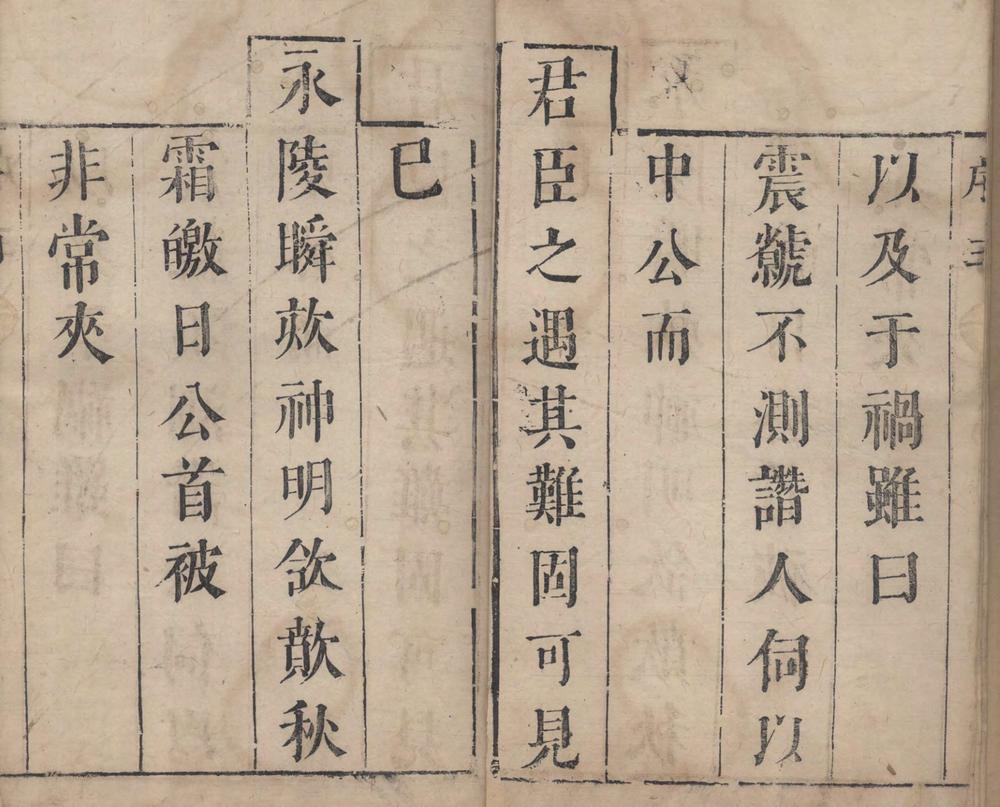 序 三
以及于禍雖曰
震虩不測譖人伺以
中公而
君臣之遇其難固可見
已
永陵瞬欻神明欱歕秋
霜皦日公首被
非常夾